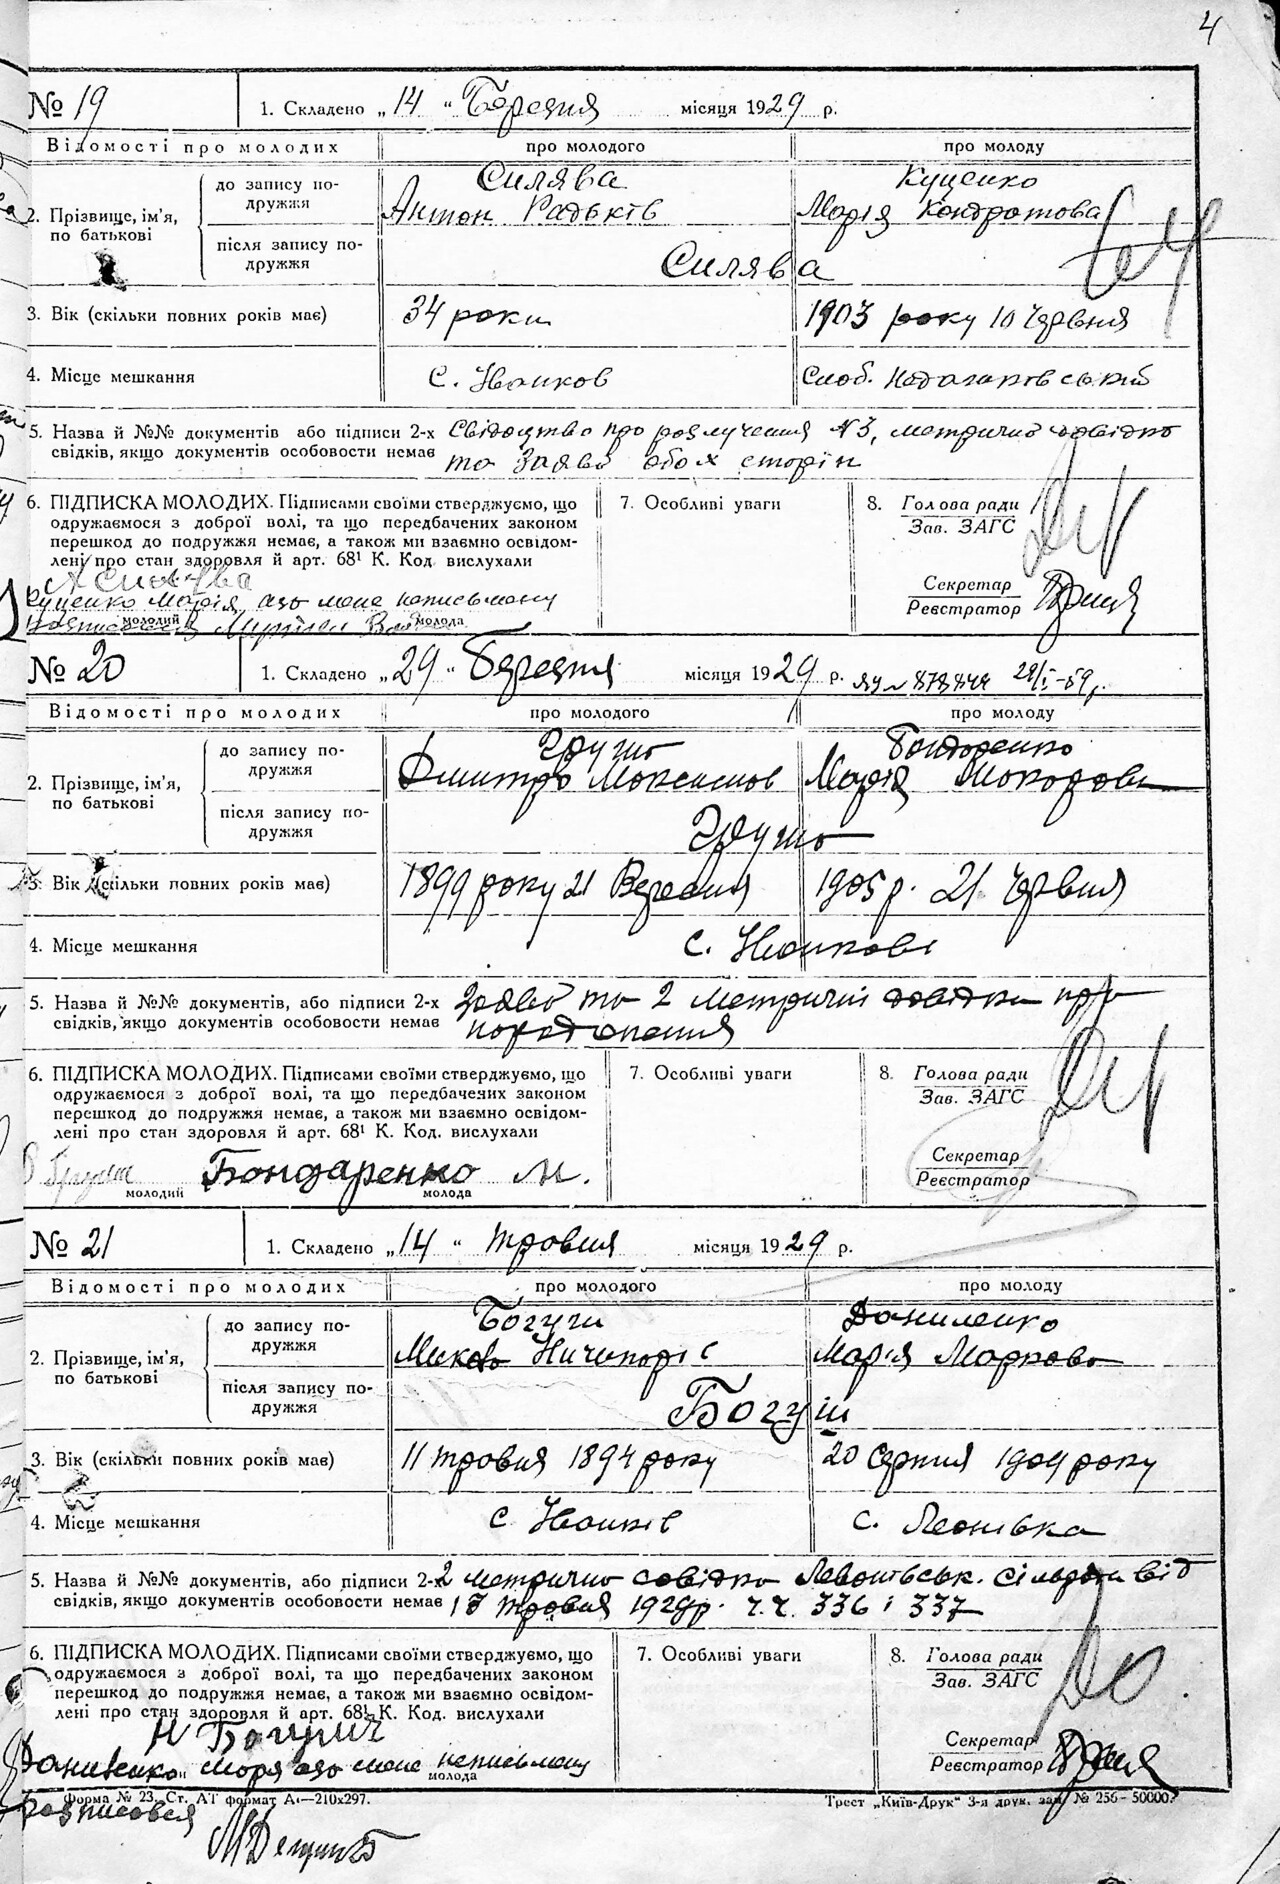 4
№ 19
1. Складено „14“ Березня місяця 1929 р.
Відомості про молодих
про молодого
про молоду
2. Прізвище, ім’я, по батькові
до запису по-
дружжя
Силява
Антон Радьків
Куценко
Марія Кондратова
після запису по-
дружжя
Силява
3. Вік (скільки повних років має)
34 роки
1903 року 10 Червня
4. Місце мешкання
с. Іванков
Слоб.
5. Назва й №№ документів або підписи 2-х
свідків, якщо документів особовости немає
Свідоцтво про розлучення №3, метрична довідка
та заява обох сторін
6. ПІДПИСКА МОЛОДИХ. Підписами своїми стверджуємо, що
одружаємося з доброї волі, та що передбачених законом
перешкод до подружжя немає, а також ми взаємно освідом-
лені про стан здоровля й арт. 68¹ К. Код. вислухали
А Силява
Куценко Марія або мене неписьмену
молодий
молода
7. Особливі уваги
8. Голова ради
Зав. ЗАГС
Секретар
Реєстратор
№ 20
1. Складено „29“ Березня місяця 1929 р.
Відомості про молодих
про молодого
про молоду
2. Прізвище, ім’я,
по батькові
до запису по-
дружжя
Дмитро Максимов
Бондаренко
Марія Макарова
після запису по-
дружжя
3. Вік (скільки повних років має)
1899 року 21 Вересня
1905 р. 21 Червня
4. Місце мешкання
с. Іванкові
5. Назва й №№ документів, або підписи 2-х
свідків, якщо документів особовости немає
Заява та 2 метричні довідки про
народження
6. ПІДПИСКА МОЛОДИХ. Підписами своїми стверджуємо, що
одружаємося з доброї волі, та що передбачених законом
перешкод до подружжя немає, а також ми взаємно освідом-
лені про стан здоровля й арт. 68¹ К. Код. вислухали
Бондаренко М.
молодий
молода
7. Особливі уваги
8. Голова ради
Зав. ЗАГС
Секретар
Реєстратор
№ 21
1. Складено „14“ травня місяця 1929 р.
Відомості про молодих
про молодого
про молоду
2. Прізвище, ім’я,
по батькові
до запису по-
дружжя
Богуш
Ничипорів
Даниленко
Марія Маркова
після запису по-
дружжя
Богуш
3. Вік (скільки повних років має)
11 травня 1894 року
20 серпня 1904 року
4. Місце мешкання
с Іванків
с. Леонівка
5. Назва й №№ документів, або підписи 2-х
свідків, якщо документів особовости немає
2 метрични довідки сільради від
13 травня 1929 р. ч.ч. 336 і 337
6. ПІДПИСКА МОЛОДИХ. Підписами своїми стверджуємо, що
одружаємося з доброї волі, та що передбачених законом
перешкод до подружжя немає, а також ми взаємно освідом-
лені про стан здоровля й арт. 68¹ К. Код. вислухали
Н Богуш
Даниленко Марія або мене неписьмену
молода
розписовся
7. Особливі уваги
8. Голова ради
Зав. ЗАГС
Секретар
Реєстратор
Форма № 23. Ст. АТ формат А₄—210x297.
Трест „Київ-Друк“ 3-я друк. зам. № 256—50000.